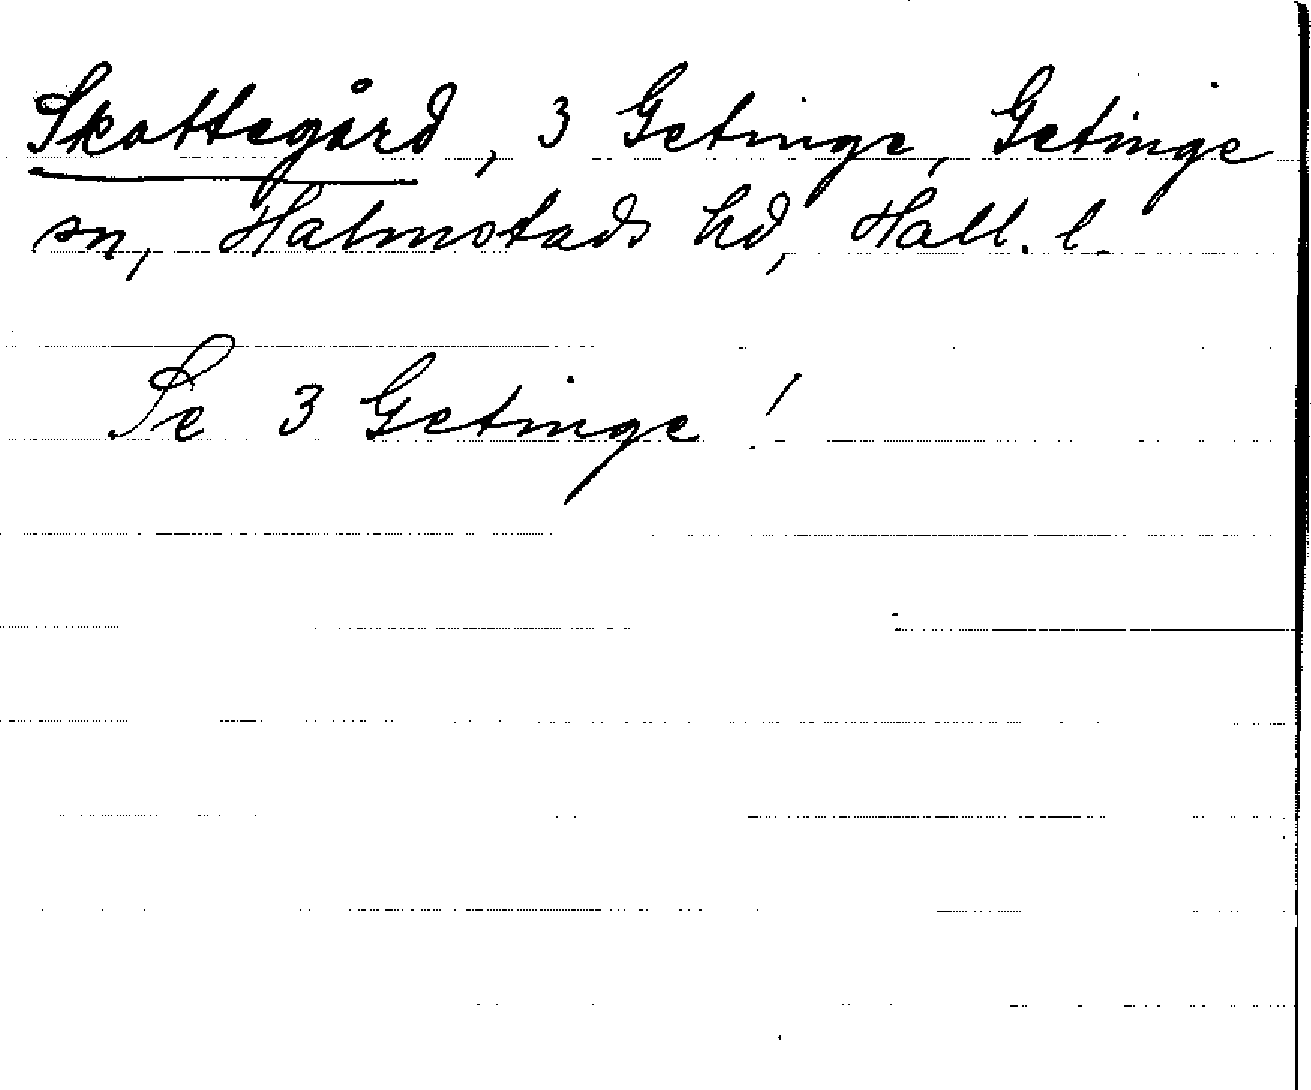 Skattegård, 3 Getinge, Getinge
sn, Halmstads hd, Hall. l.
Se 3 Getinge!